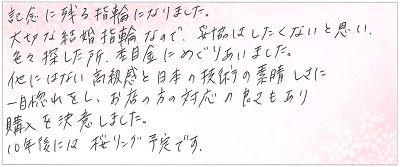 記念に残る指輪になりました。
大切な結婚指輪なので、妥協はしたくないと思い、
色々探した所、杢目金にめぐりあいました。
他にはない高級感と日本の技術の素晴しさに
一目惚れをし、お店の方の対応の良さもあり
購入を決意しました。
10年後には桜リング予定です。